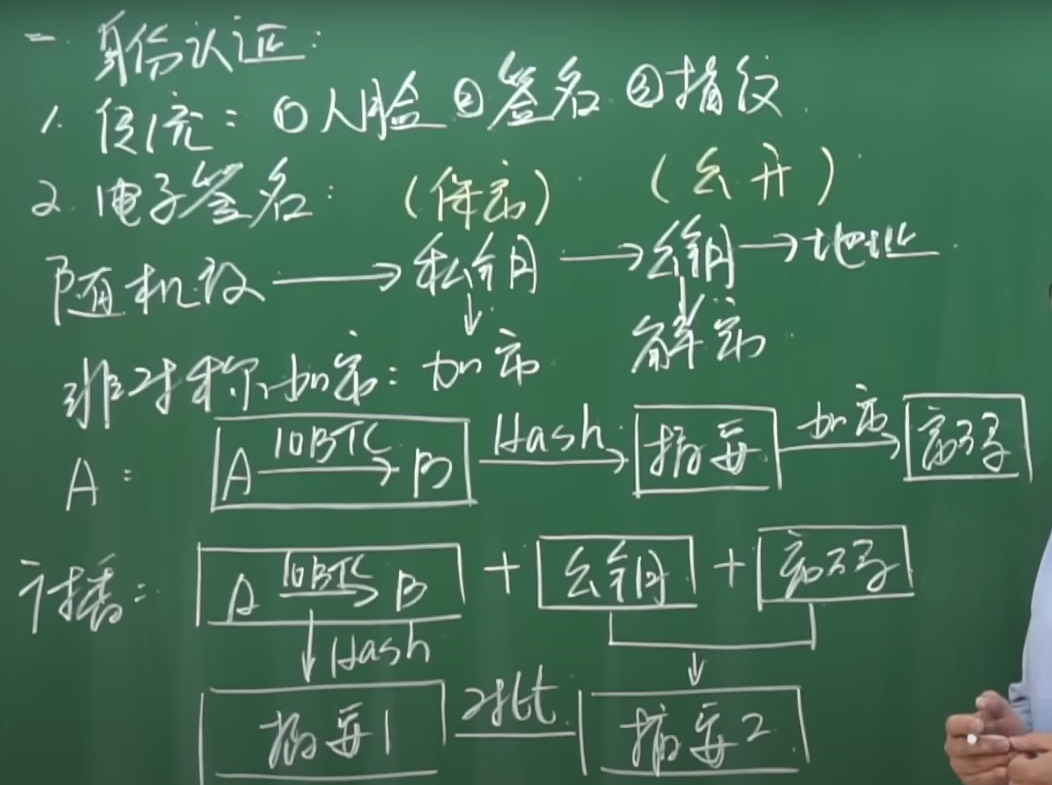 一. 身份认证:
1. 传统: ①人脸 ②签名 ③指纹
2. 电子签名: (保密) (公开)
随机数 → 私钥 → 公钥 → 地址
↓ ↓
非对称加密: 加密 解密
A: A 10BTC→ B Hash→ 摘要 加密→ 密码
广播: A 10BTC→ B + 公钥 + 密码
↓Hash ↓
摘要1 对比 摘要2